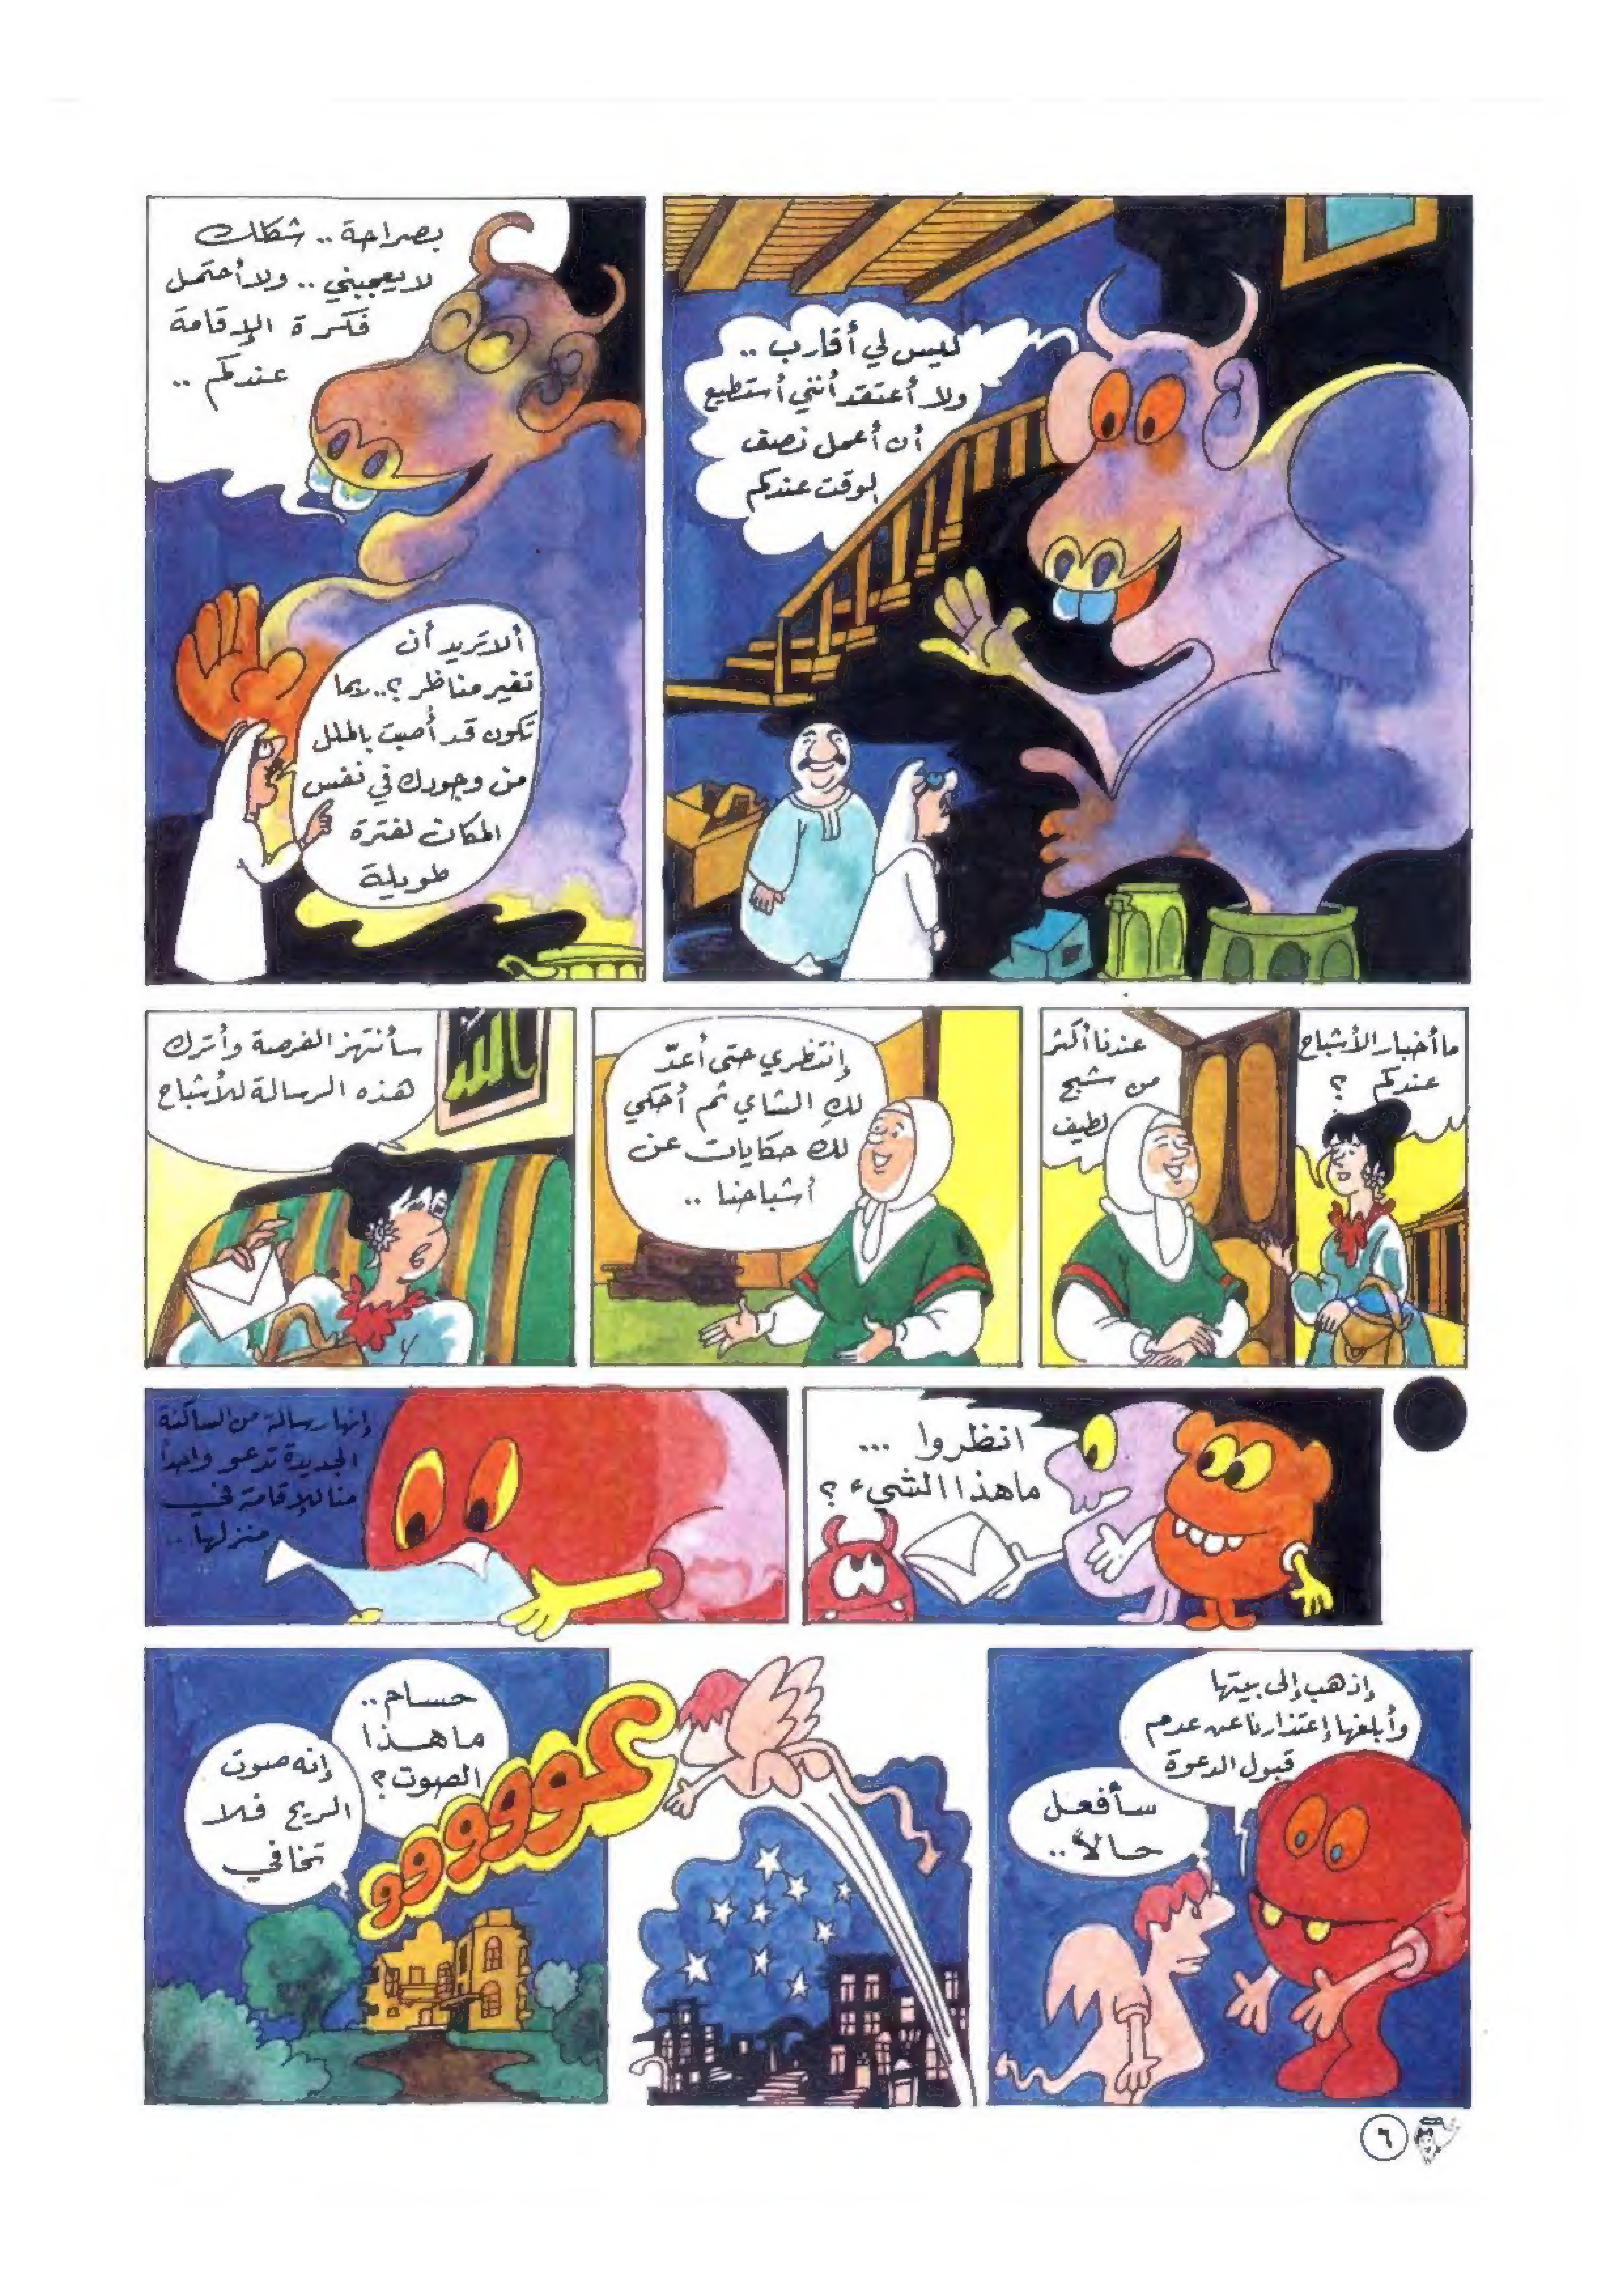 ليس لي أقارب ..
ولا أعتقد أنني أستطيع
أن أعمل نصف
الوقت عندكم
بصراحة .. شكلك
لا يعجبني .. ولا أحتمل
فكرة الإقامة
عندكم ..
ألا تريد أن
تغير مناظر ؟.. ربما
تكون قد أصبت بالملل
من وجودك في نفس
المكان لفترة
طويلة
ما أخبار الأشباح
عندكم ؟
عندنا أكثر
من شبح
لطيف
إنتظري حتى أعدّ
لكِ الشاي ثم أحكي
لك حكايات عن
أشباحنا ..
سأنتهز الفرصة وأترك
هذه الرسالة للأشباح
الله
انظروا ...
ماهذا الشيء ؟
إنها رسالة من الساكنة
الجديدة تدعو واحداً
منا للإقامة في
منزلها ..
إذهب إلى بيتها
وأبلغها إعتذارنا عن عدم
قبول الدعوة
سأفعل
حالاً ..
عووووو
حسام ..
ما هذا
الصوت ؟
إنه صوت
الريح فلا
تخافي
٦